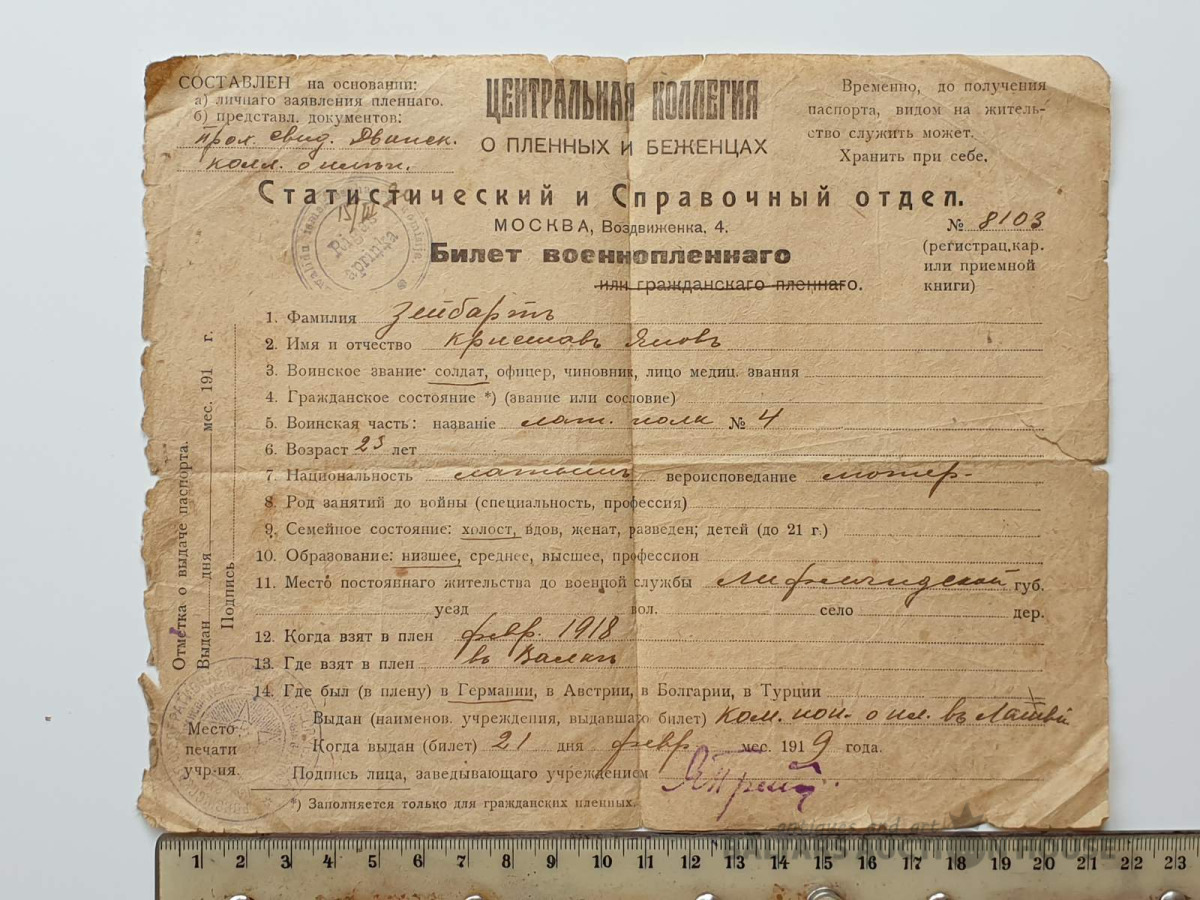 СОСТАВЛЕН на основании:
а) личнаго заявления пленнаго.
б) представл. документов:
прох. свид. Двинск.
колл. о
ЦЕНТРАЛЬНАЯ КОЛЛЕГИЯ
О ПЛЕННЫХ И БЕЖЕНЦАХ
Временно, до получения
паспорта, видом на житель-
ство служить может.
Хранить при себе.
Статистический и Справочный отдел.
МОСКВА, Воздвиженка, 4.
№ 8103
(регистрац.кар.
или приемной
книги)
Билет военнопленнаго
или гражданскаго пленнаго.
15/III
Rīgas
apriņķa
1. Фамилия Зейбартъ
2. Имя и отчество Кристапъ Яновъ
3. Воинское звание: солдат, офицер, чиновник, лицо медиц. звания
4. Гражданское состояние *) (звание или сословие)
5. Воинская часть: названіе лат. полк № 4
6. Возраст 23 лет
7. Национальность латышъ вероисповедание лютер-
8. Род занятий до войны (специальность, профессия)
9. Семейное состояние: холост, вдов, женат, разведен; детей (до 21 г.)
10. Образование: низшее, среднее, высшее, профессион
11. Место постояннаго жительства до военной службы Лифляндской губ.
уезд вол. село дер.
12. Когда взят в плен февр. 1918
13. Где взят в плен въ Валкъ
14. Где был (в плену) в Германии, в Австрии, в Болгарии, в Турции
Выдан (наименов. учреждения, выдавшаго билет) ком. о пл. въ Латвіи
Когда выдан (билет) 21 дня февр мес. 1919 года.
Подпись лица, заведывающаго учреждением
*) Заполняется только для гражданских пленных.
Отметка о выдаче паспорта.
Выдан дня мес. 191 г.
Подпись
Место
печати
учр-ия.
antiques and art
BALTARS AUCTION HOUSE
1 2 3 4 5 6 7 8 9 10 11 12 13 14 15 16 17 18 19 20 21 22 23